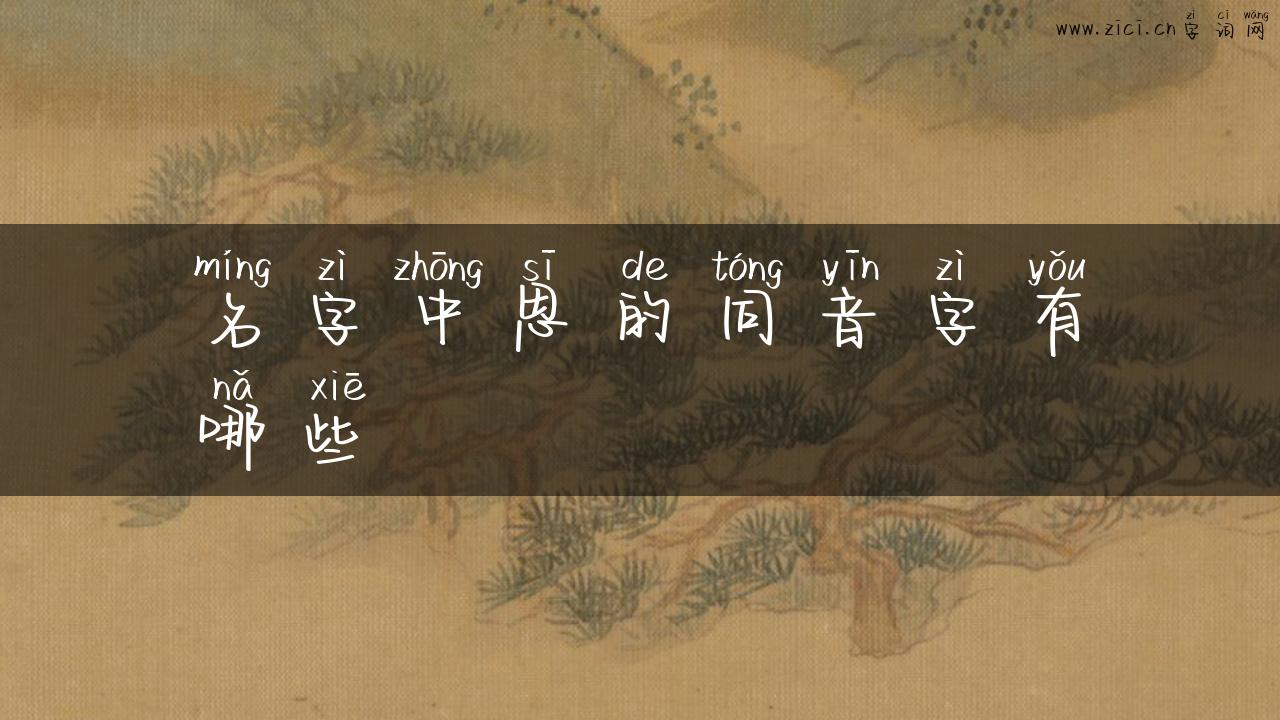 zì cí wǎng
www.zici.cn 字 词 网
míng zì zhōng sī de tóng yīn zì yǒu
名 字 中 思 的 同 音 字 有
nǎ xiē
哪 些